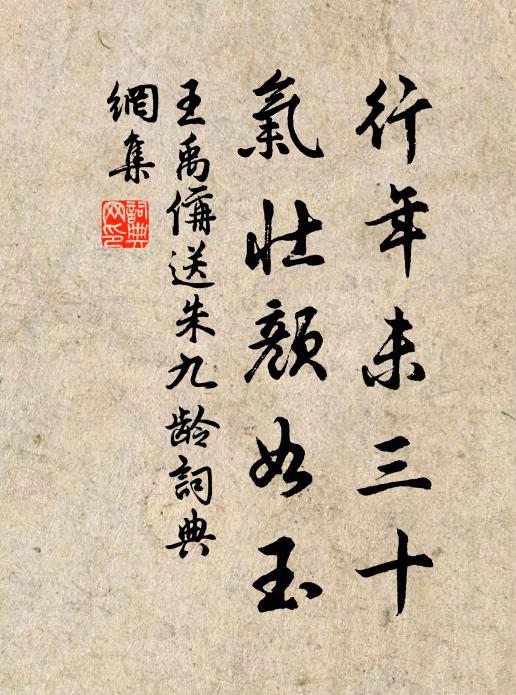 行年未三十
氣壯顏如玉
王禹偁送朱九齡詞典
網集
詞典
网印